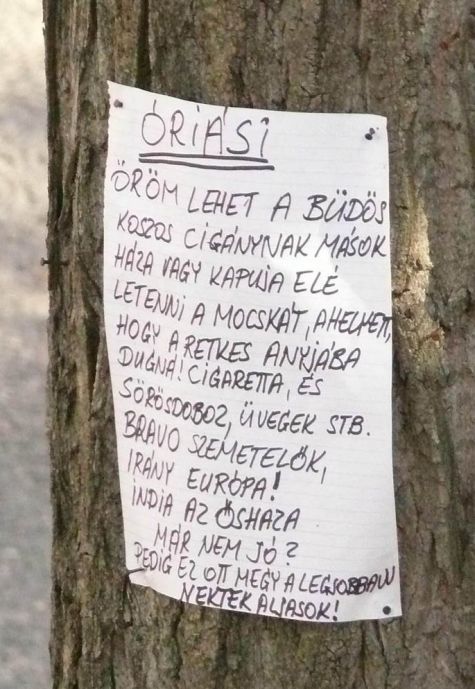 ÓRIÁSI
ÖRÖM LEHET A BÜDÖS
KOSZOS CIGÁNYNAK MÁSOK
HÁZA VAGY KAPUJA ELÉ
LETENNI A MOCSKÁT, AHELYETT,
HOGY A RETKES ANYJÁBA
DUGNÁ! CIGARETTA, ÉS
SÖRÖSDOBOZ, ÜVEGEK STB.
BRAVO SZEMETELŐK,
IRÁNY EURÓPA!
INDIA AZ ŐSHAZA
MÁR NEM JÓ?
PEDIG EZ OTT MEGY A LEGJOBBAN
NEKTEK ALJASOK!